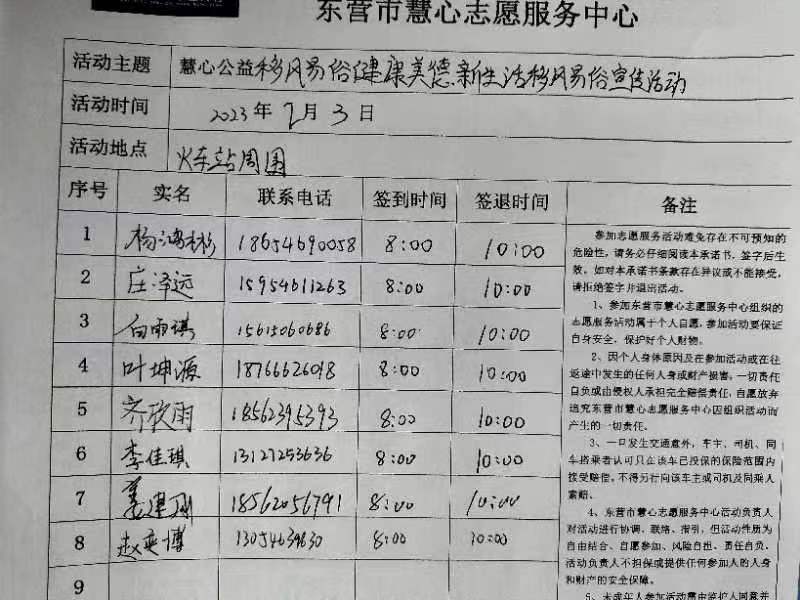 东营市慧心志愿服务中心
活动主题 慧心公益移风易俗健康美德新生活移风易俗宣传活动
活动时间 2023年2月3日
活动地点 火车站周围
序号 实名 联系电话 签到时间 签退时间 备注
1 杨鸿彬 18654690058 8:00 10:00
2 庄泽远 15954611263 8:00 10:00
3 白雨琪 15615060686 8:00 10:00
4 叶坤源 18766626098 8:00 10:00
5 齐欣雨 18562395393 8:00 10:00
6 李佳琪 13127253636 8:00 10:00
7 姜建 18562056791 8:00 10:00
8 赵奕博 13054639630 8:00 10:00
9
参加志愿服务活动难免存在不可预知的
危险性，请务必仔细阅读本承诺书，签字后生
效，如对本承诺书条款存在异议或不能接受，
请拒绝签字并退出活动。
1、参加东营市慧心志愿服务中心组织的
志愿服务活动属于个人自愿，参加活动要保证
自身安全，保护好个人财物。
2、因个人身体原因及在参加活动或在往
返途中发生的任何人身或财产损害，一切责任
自负或由侵权人承担完全赔偿责任，自愿放弃
追究东营市慧心志愿服务中心因组织活动而
产生的一切责任。
3、一旦发生交通意外，车主、司机、同
车搭乘者认可只在该车已投保的保险范围内
接受赔偿，不得另行向该车主或司机及同乘人
索赔。
4、东营市慧心志愿服务中心活动负责人
对活动进行协调、联络、指引，但活动性质为
自由结合、自愿参加、风险自担、责任自负，
活动负责人不担保或提供任何参加人的人身
和财产的安全保障。
5、未成年人参加活动需由监护人同意并